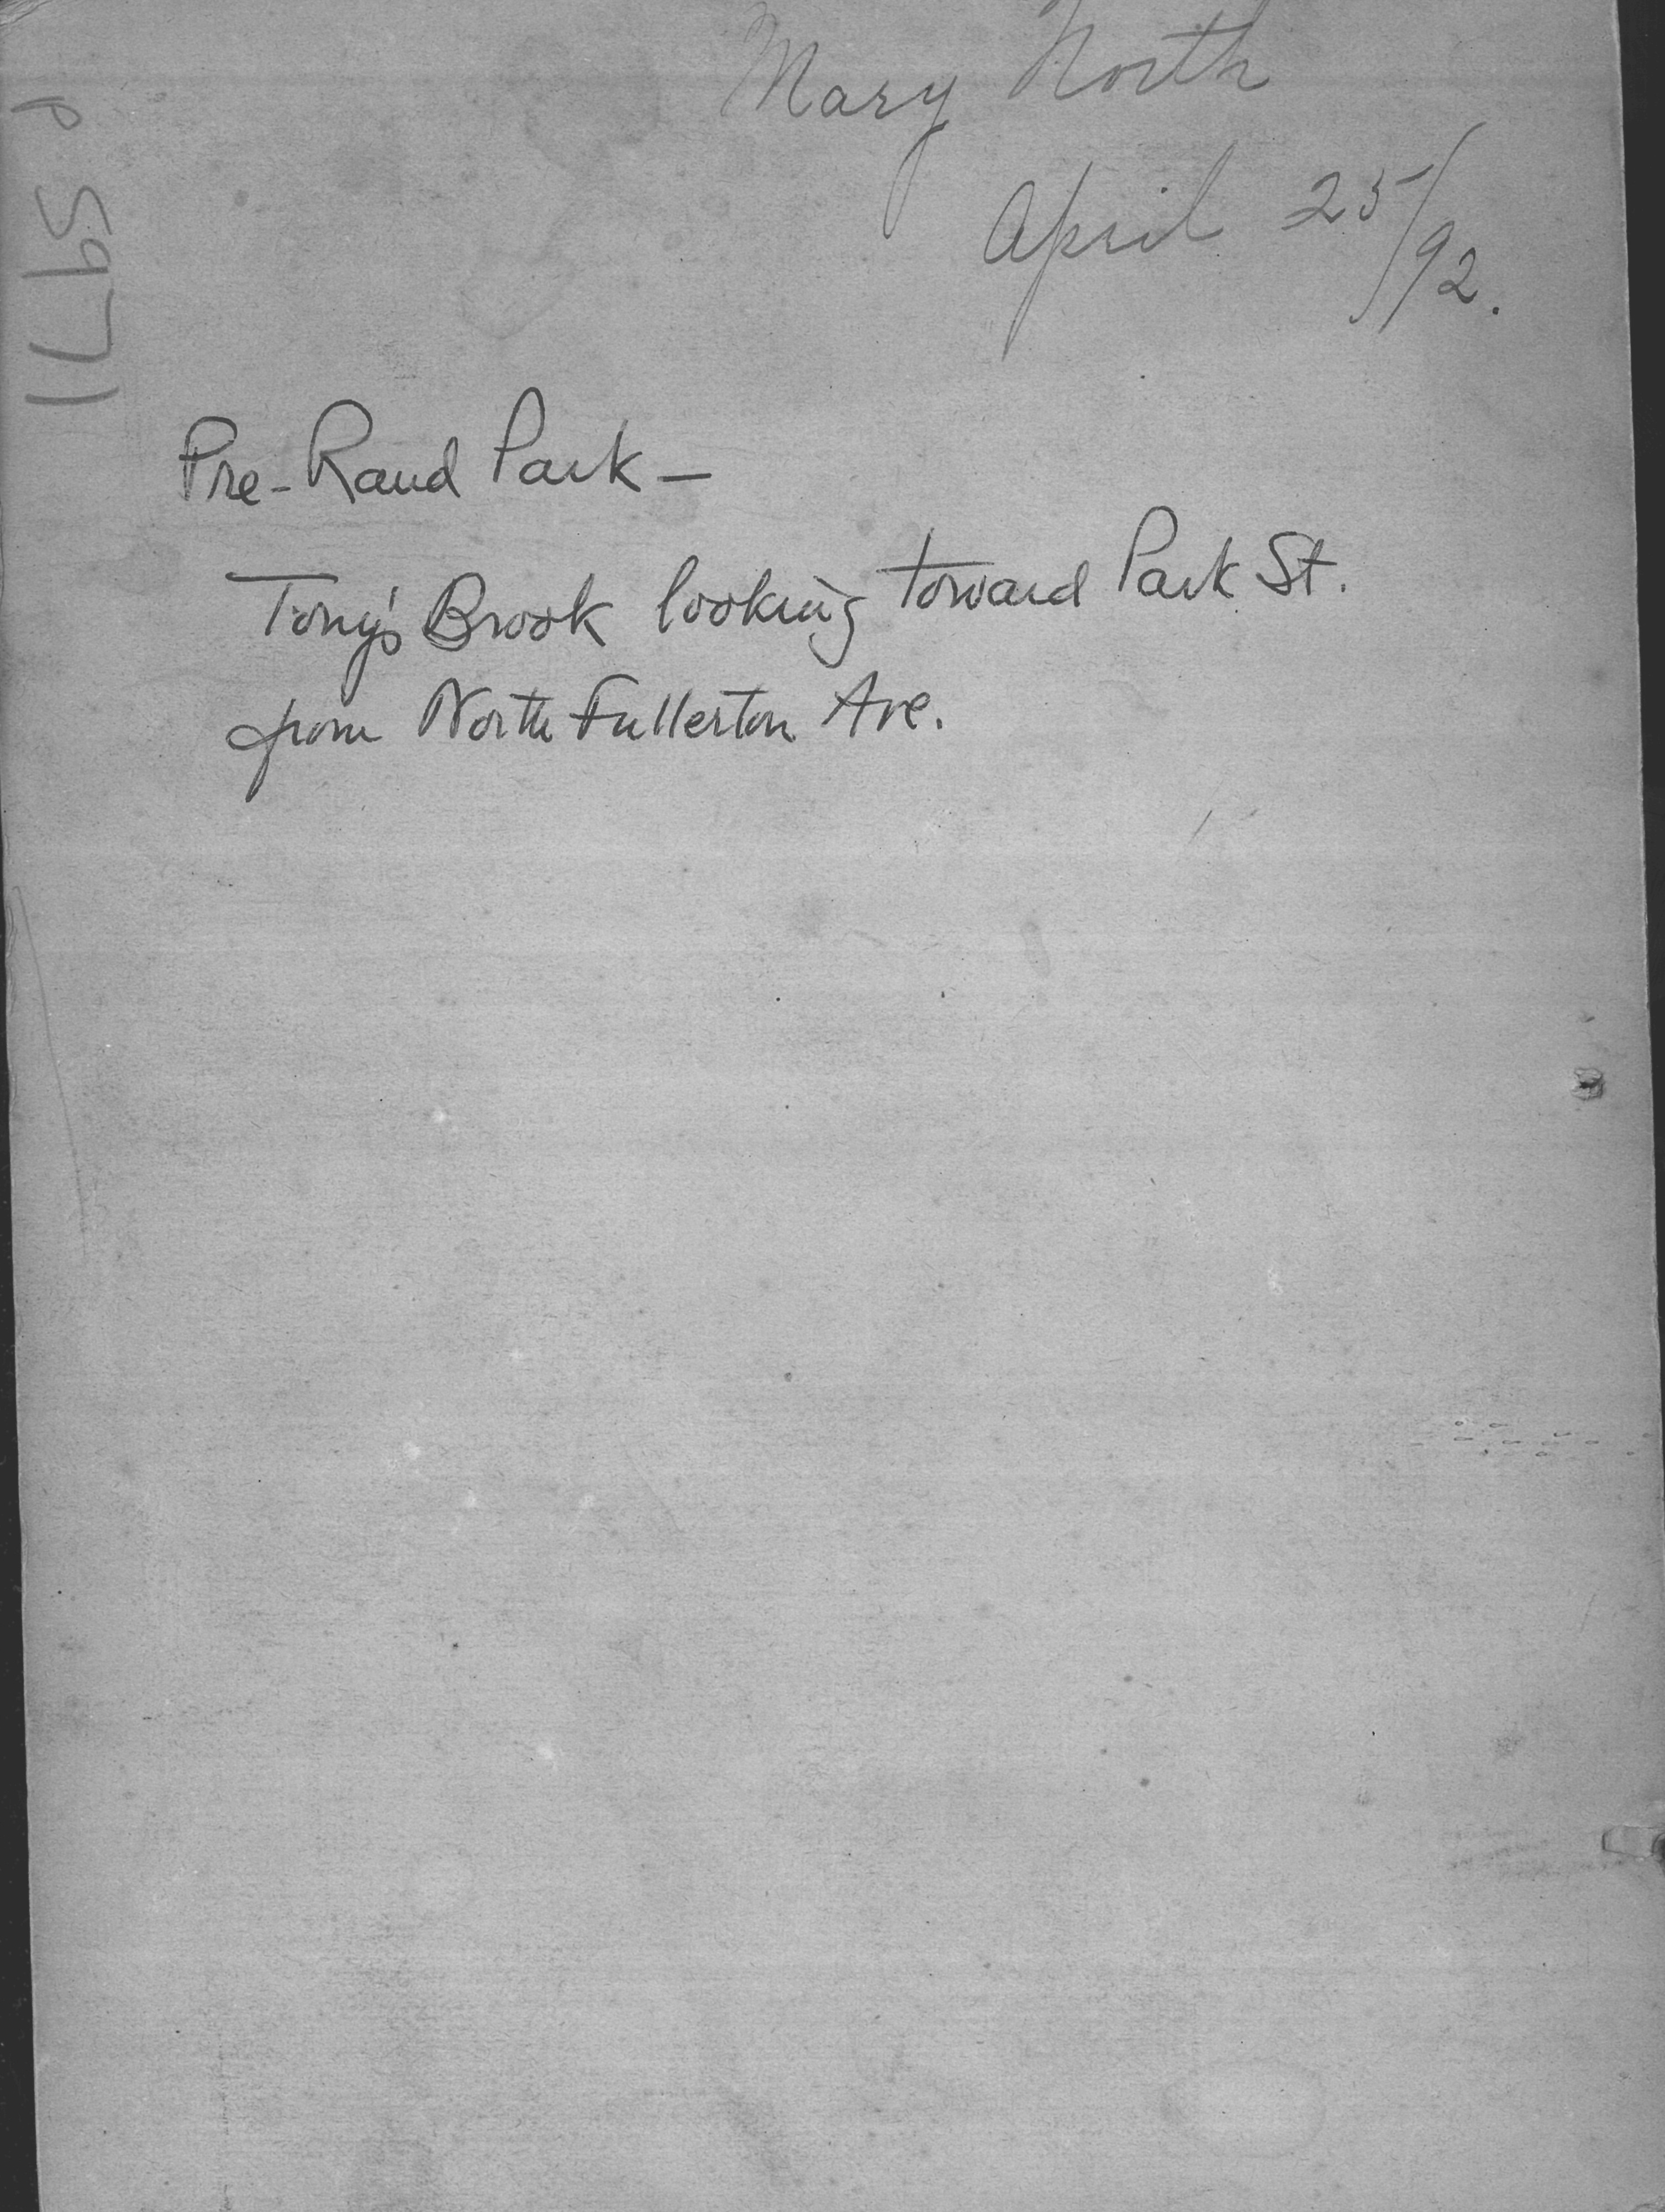 Mary North
April 25/92.
Pre-Rand Park —
Tony's Brook looking toward Park St.
from North Fullerton Ave.